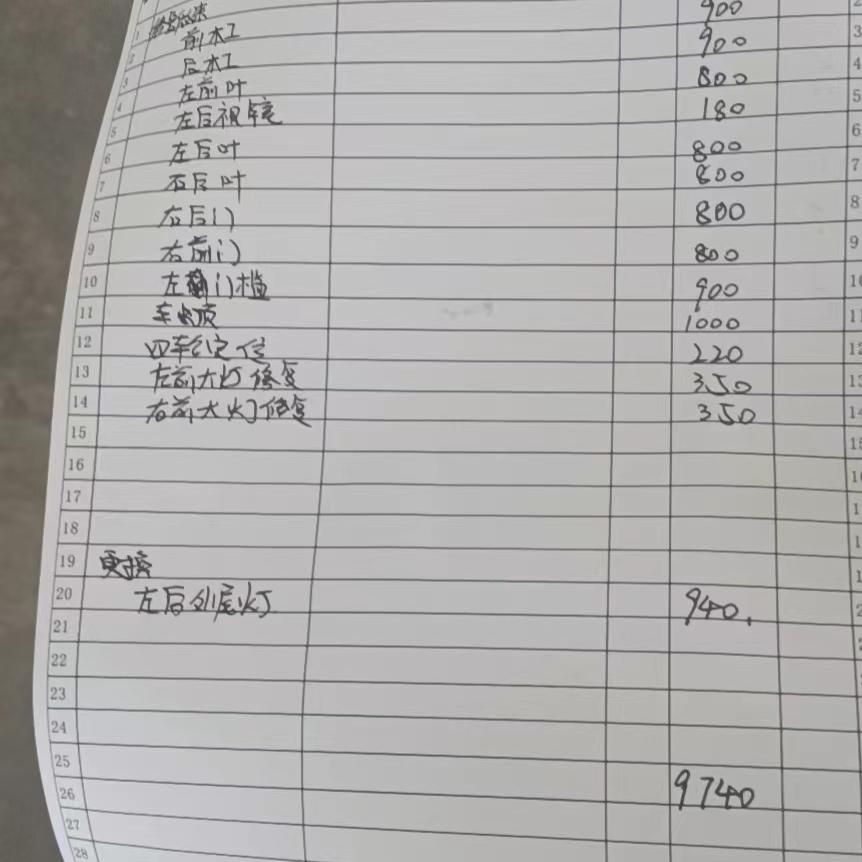 900
1 前木工 900 3
2 后木工 800 4
3 左前叶 180 5
4 左后视镜
5 左后叶 800 6
6 右后叶 800 7
7 右后门 800 8
8 右前门 800 9
9 左前门槛 900
10 车顶 1000
11 四轮定位 220
12 左前大灯修复 350
13 右前大灯修复 350
14
15
16
17
18
19 更换
20 左后外尾灯 940.
21
22
23
24
25
26 9740
27
28